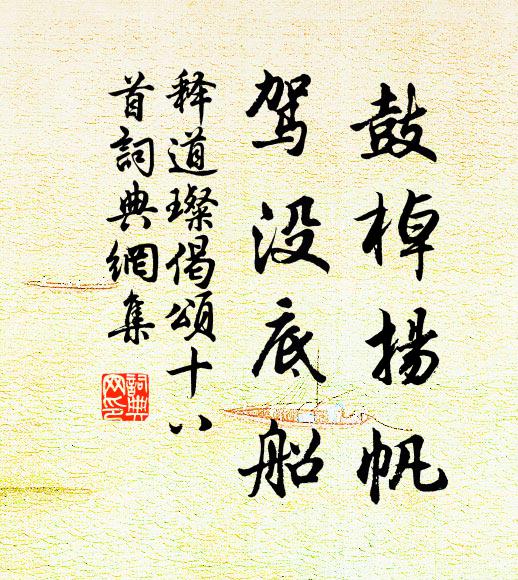 鼓棹揚帆
驾没底船
释道璨偈頌十八
首詞典網集
詞典